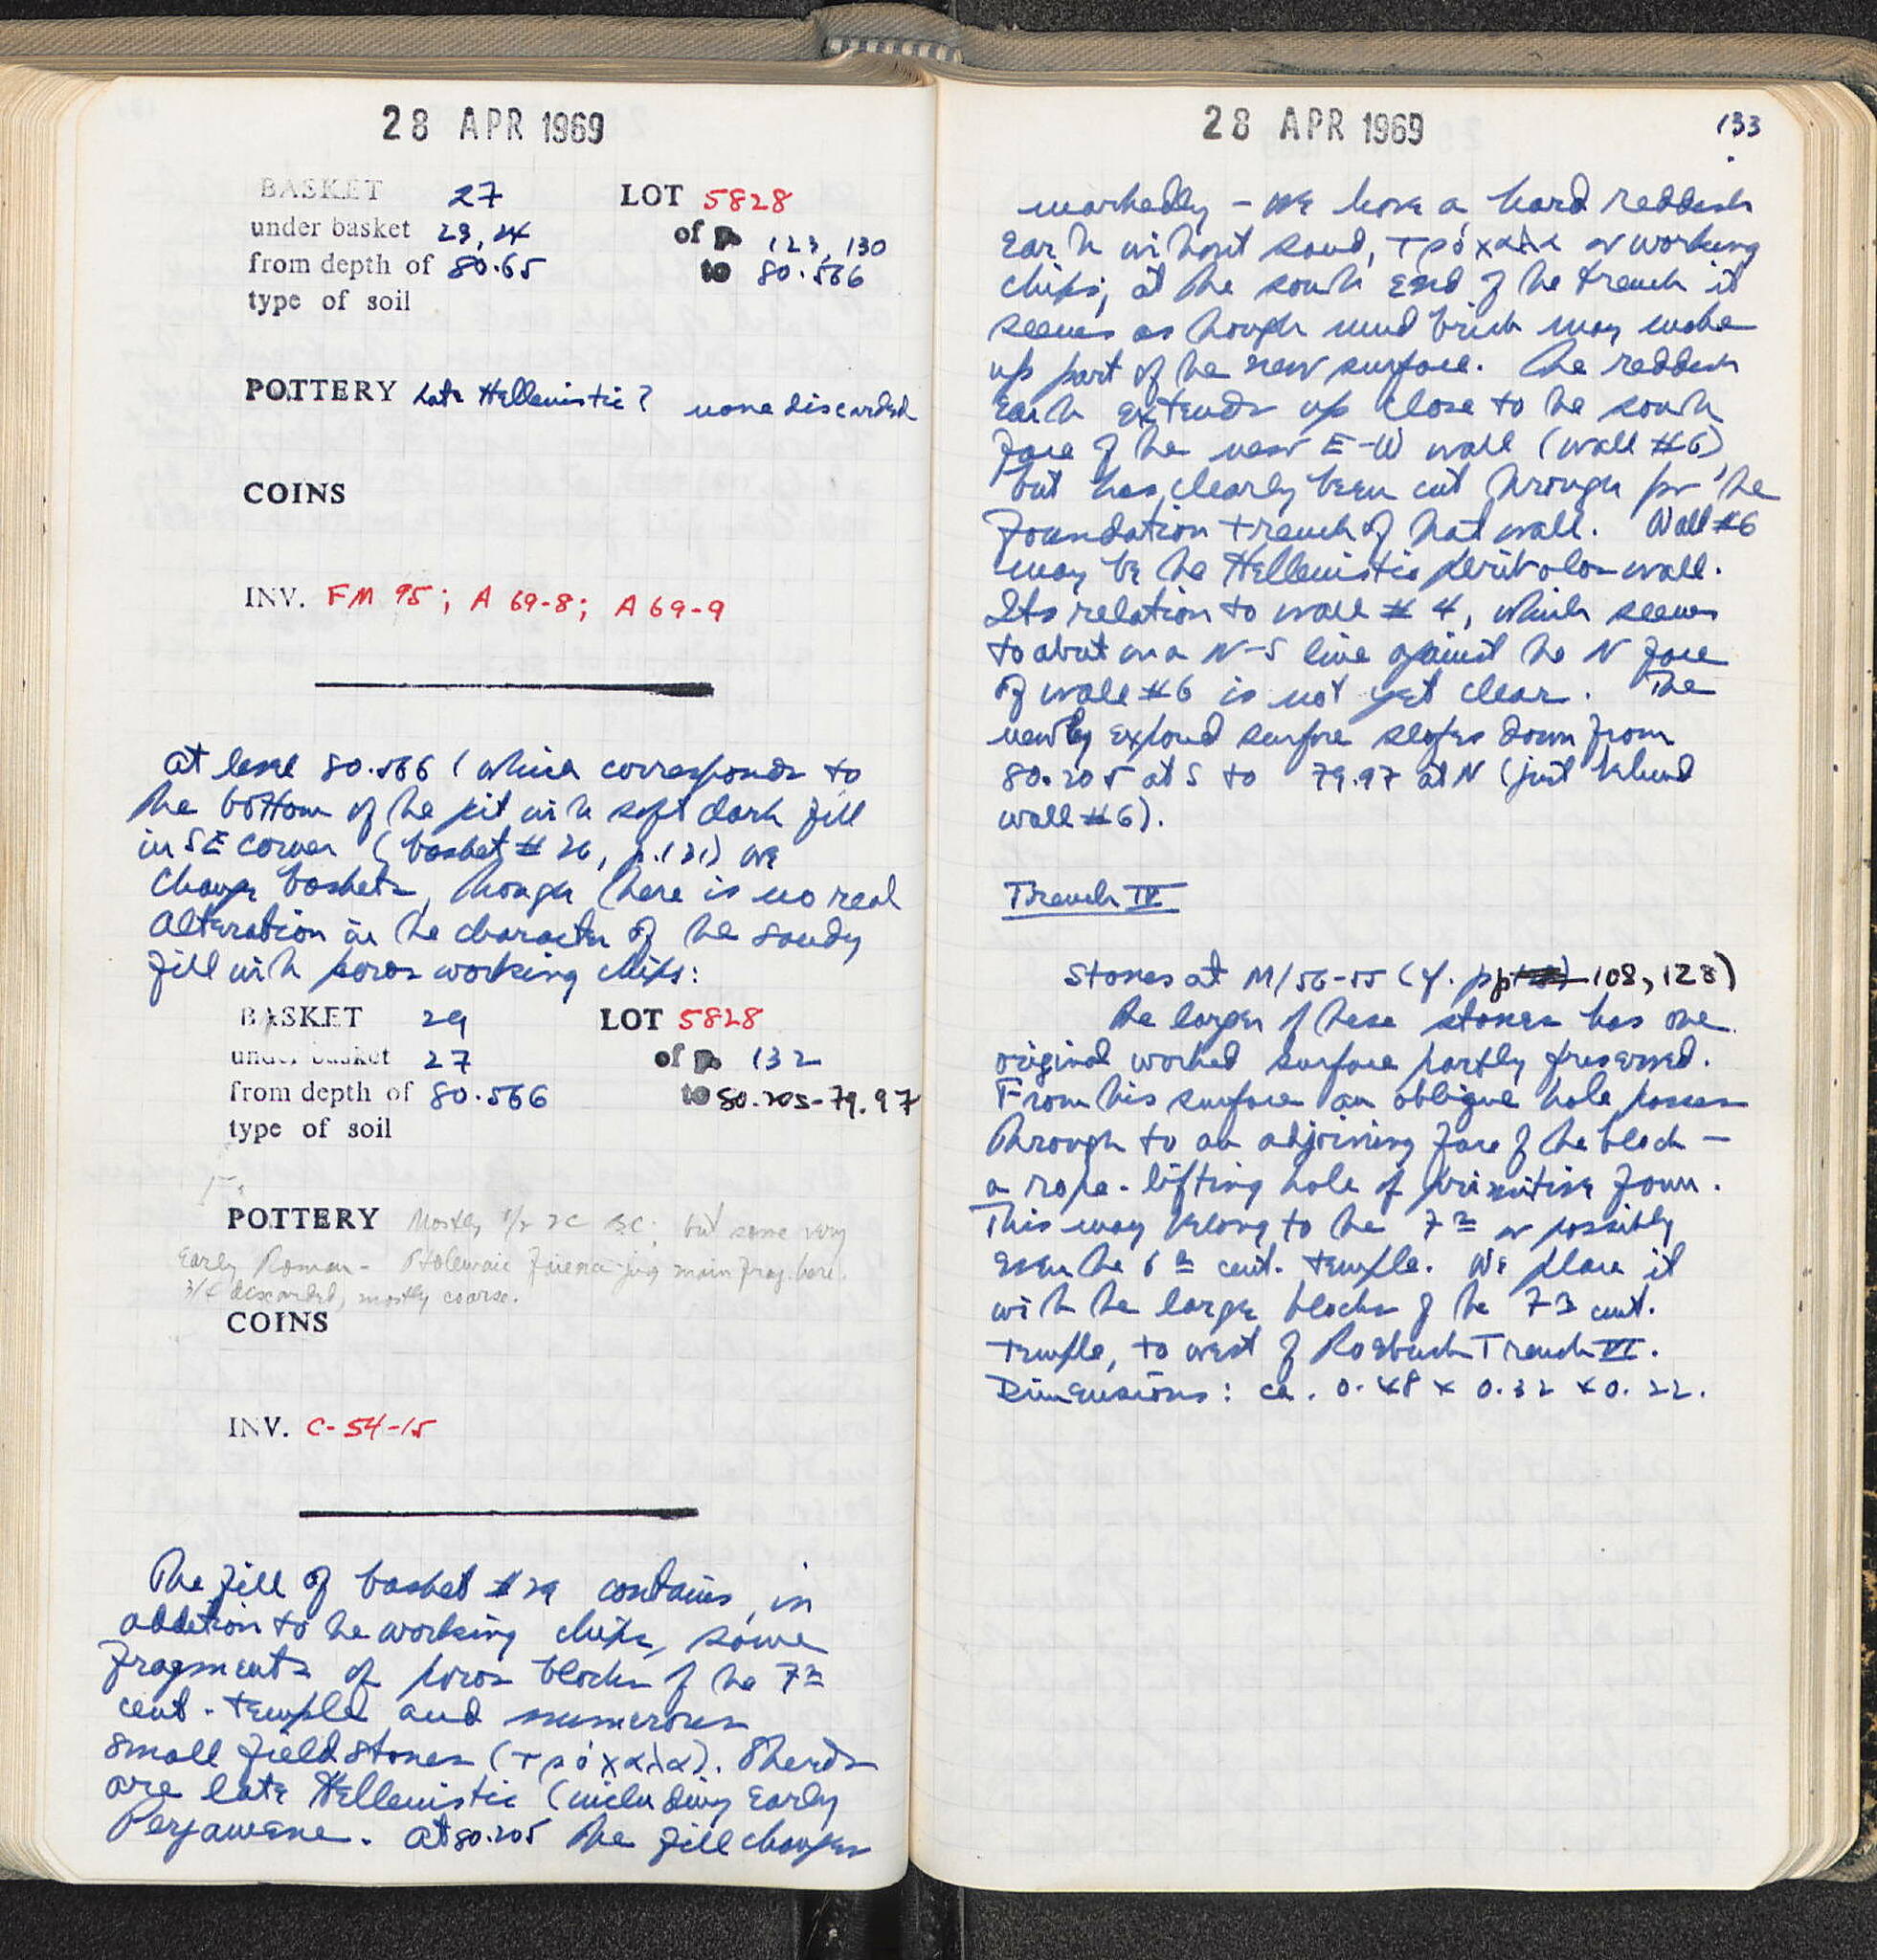 28 APR 1969
BASKET 27 LOT 5828
under basket 23, 24 of p. 123, 130
from depth of 80.65 to 80.566
type of soil
POTTERY Late Hellenistic? none discarded
COINS
INV. FM 95; A 69-8; A 69-9
At level 80.566 (which corresponds to
the bottom of the pit with soft dark fill
in SE corner (basket #26, p.131) we
change baskets, though there is no real
alteration in the character of the sandy
fill with poros working chips:
BASKET 29 LOT 5828
under basket 27 of p. 132
from depth of 80.566 to 80.205-79.97
type of soil
POTTERY Mostly 1/2 2C BC; but some very
Early Roman - Ptolemaic faience jug main frag. here.
3/4 discarded, mostly coarse.
COINS
INV. C-54-15
The fill of basket #29 contains, in
addition to the working chips, some
fragments of poros blocks of the 7th
cent. temple and numerous
small field stones (τρόχαλα). Sherds
are late Hellenistic (including Early
Pergamene. At 80.205 the fill changes
28 APR 1969 133
markedly - we have a hard reddish
earth without sand, τρόχαλα or working
chips; at the south end of the trench it
seems as though mud brick may make
up part of the new surface. The reddish
earth extends up close to the south
face of the new E-W wall (wall #6),
but has clearly been cut through for the
foundation trench of that wall. Wall #6
may be the Hellenistic peribolos wall.
Its relation to wall #4, which seems
to abut on a N-S line against the N face
of wall #6 is not yet clear. The
newly exposed surface slopes down from
80.205 at S to 79.97 at N (just behind
wall #6).
Trench IV
Stones at M/56-55 (cf. pp 108, 128)
The larger of these stones has one
original worked surface partly preserved.
From this surface an oblique hole passes
through to an adjoining face of the block -
a rope-lifting hole of primitive form.
This may belong to the 7th or possibly
even the 6th cent. temple. We place it
with the large blocks of the 7th cent.
temple, to west of Roebuck Trench VI.
Dimensions: ca. 0.48 x 0.32 x 0.22.